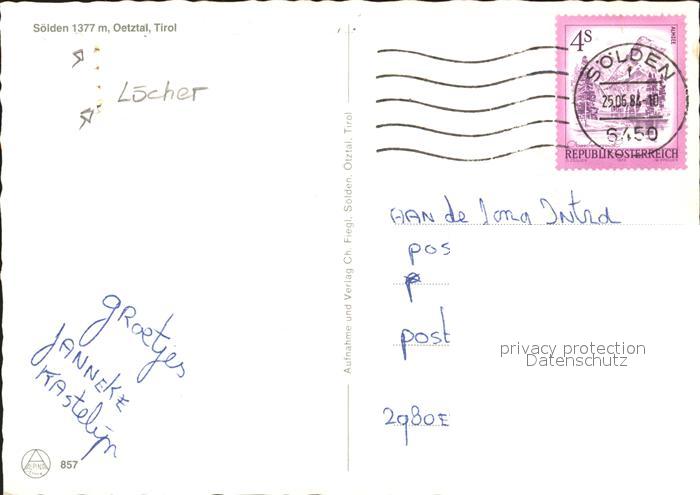 Sölden 1377 m, Oetztal, Tirol
Löcher
Aufnahme und Verlag Ch. Fiegl, Sölden, Ötztal, Tirol
groetjes
JANNEKE
KAstelijn
857
4S
ALMSEE
SÖLDEN
25.06.84-10
6450
REPUBLIK ÖSTERREICH
AAN de
pos
p
post
2980E
privacy protection
Datenschutz